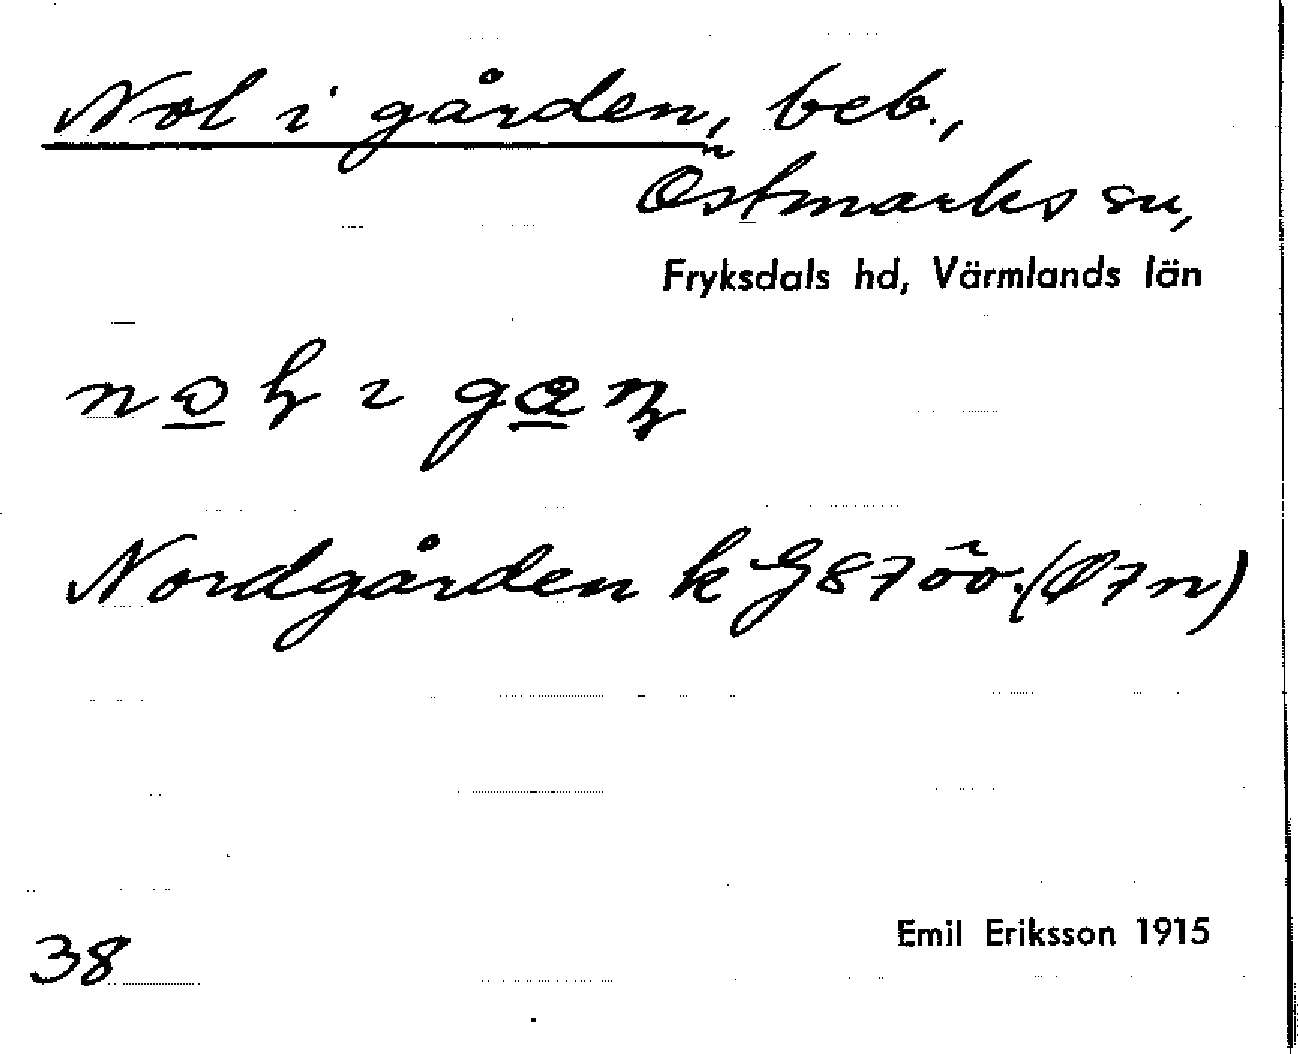 Nol i gården, beb.,
Östmarks sn,
Fryksdals hd, Värmlands län
Nordgården k G 87 öo. (Ö 7 n)
38
Emil Eriksson 1915